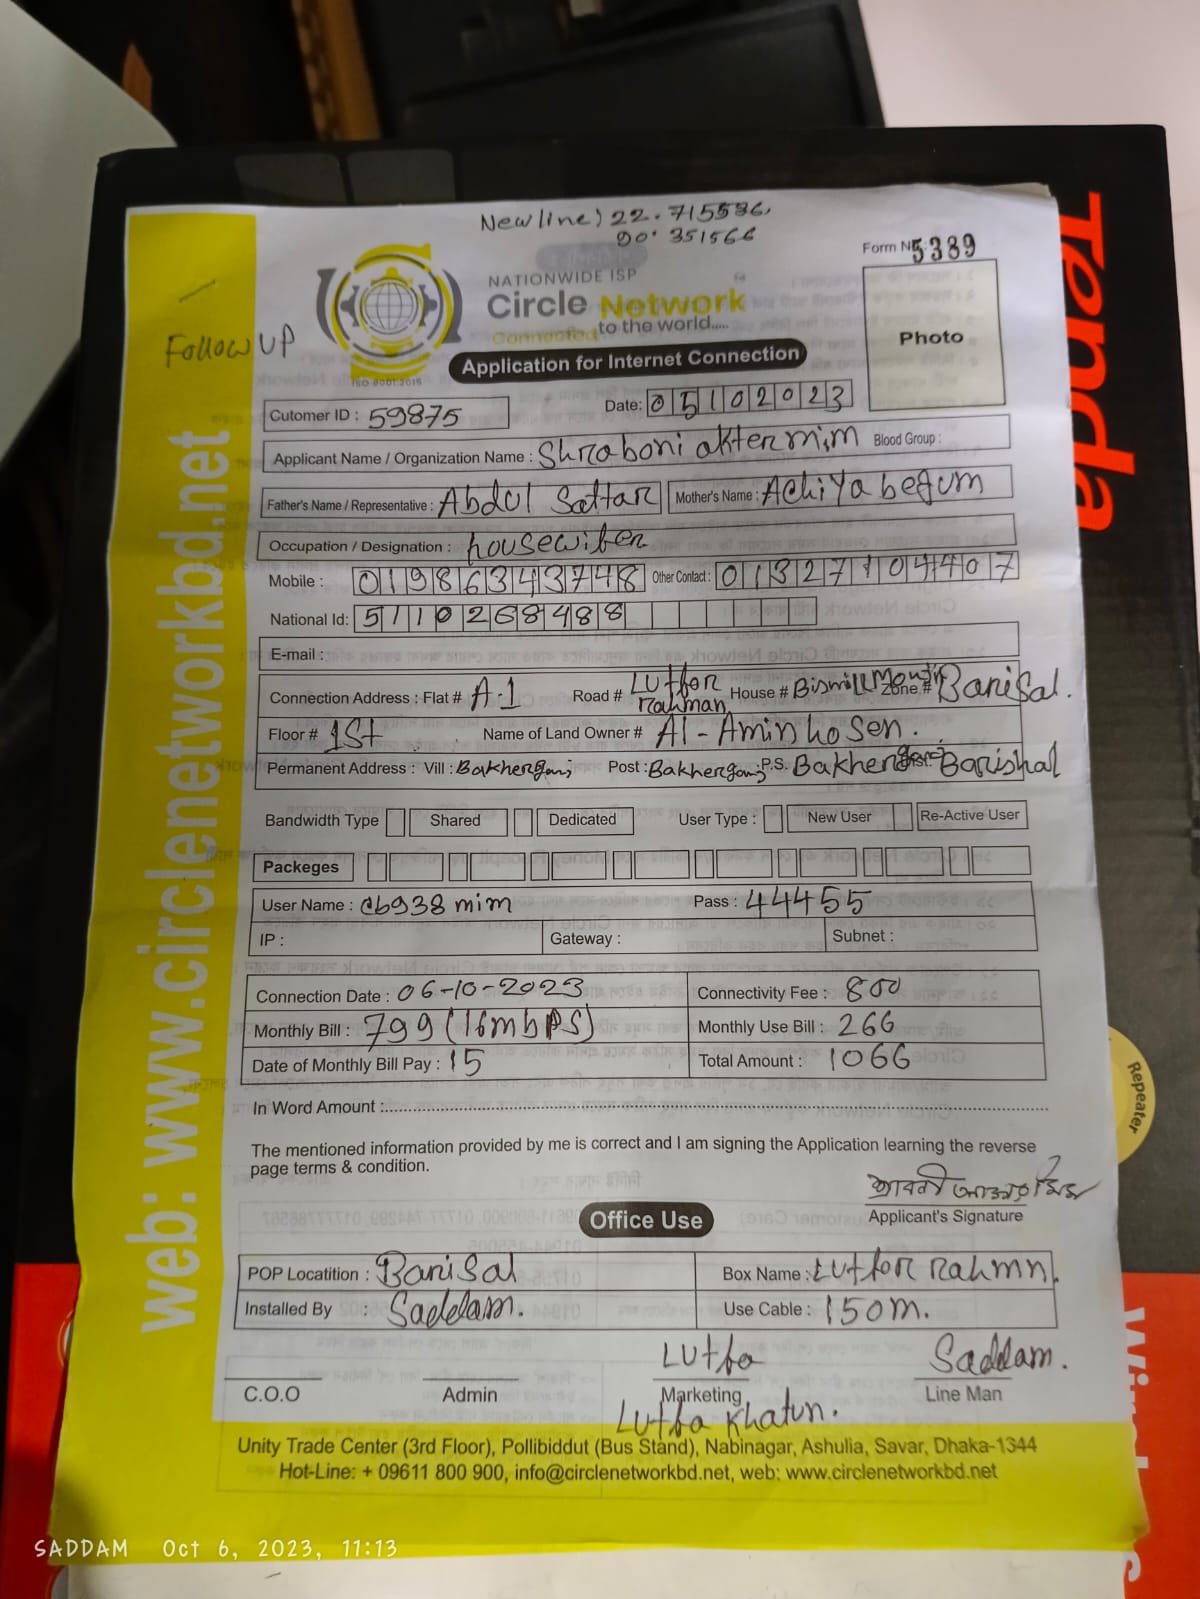 New line) 22.715536,
90.351566
Form No: 5389
Follow UP
NATIONWIDE ISP
Circle Network
Connected to the world.....
ISO 9001:2015
Application for Internet Connection
Photo
Cutomer ID : 59875
Date: 05102023
Applicant Name / Organization Name : Shraboni akter mim Blood Group :
Father's Name / Representative : Abdul Sattar Mother's Name : Achiya begum
Occupation / Designation : housewifer
Mobile : 01986343748 Other Contact : 01327104407
National Id: 5110268488
E-mail :
Connection Address : Flat # A-1 Road # Lutfor rahman House # Bismill Zone # Barisal.
Floor # 1st Name of Land Owner # Al-Amin hosen.
Permanent Address : Vill : Bakhergonj Post : Bakhergonj P.S. Bakhergonj Dist: Barishal
Bandwidth Type Shared Dedicated User Type : New User Re-Active User
Packeges
User Name : cb938 mim Pass : 44455
IP : Gateway : Subnet :
Connection Date : 06-10-2023 Connectivity Fee : 800
Monthly Bill : 799 (16mbPS) Monthly Use Bill : 266
Date of Monthly Bill Pay : 15 Total Amount : 1066
In Word Amount :
The mentioned information provided by me is correct and I am signing the Application learning the reverse
page terms & condition.
শ্রাবনী আক্তার মিম
Applicant's Signature
Office Use
POP Locatition : Barisal Box Name : Lutfor Rahmn.
Installed By : Saddam. Use Cable : 150m.
Lutfa Saddam.
C.O.O Admin Marketing Line Man
Lutfa Khatun.
Unity Trade Center (3rd Floor), Pollibiddut (Bus Stand), Nabinagar, Ashulia, Savar, Dhaka-1344
Hot-Line: + 09611 800 900, info@circlenetworkbd.net, web: www.circlenetworkbd.net
web: www.circlenetworkbd.net
Tenda
Repeater
SADDAM Oct 6, 2023, 11:13